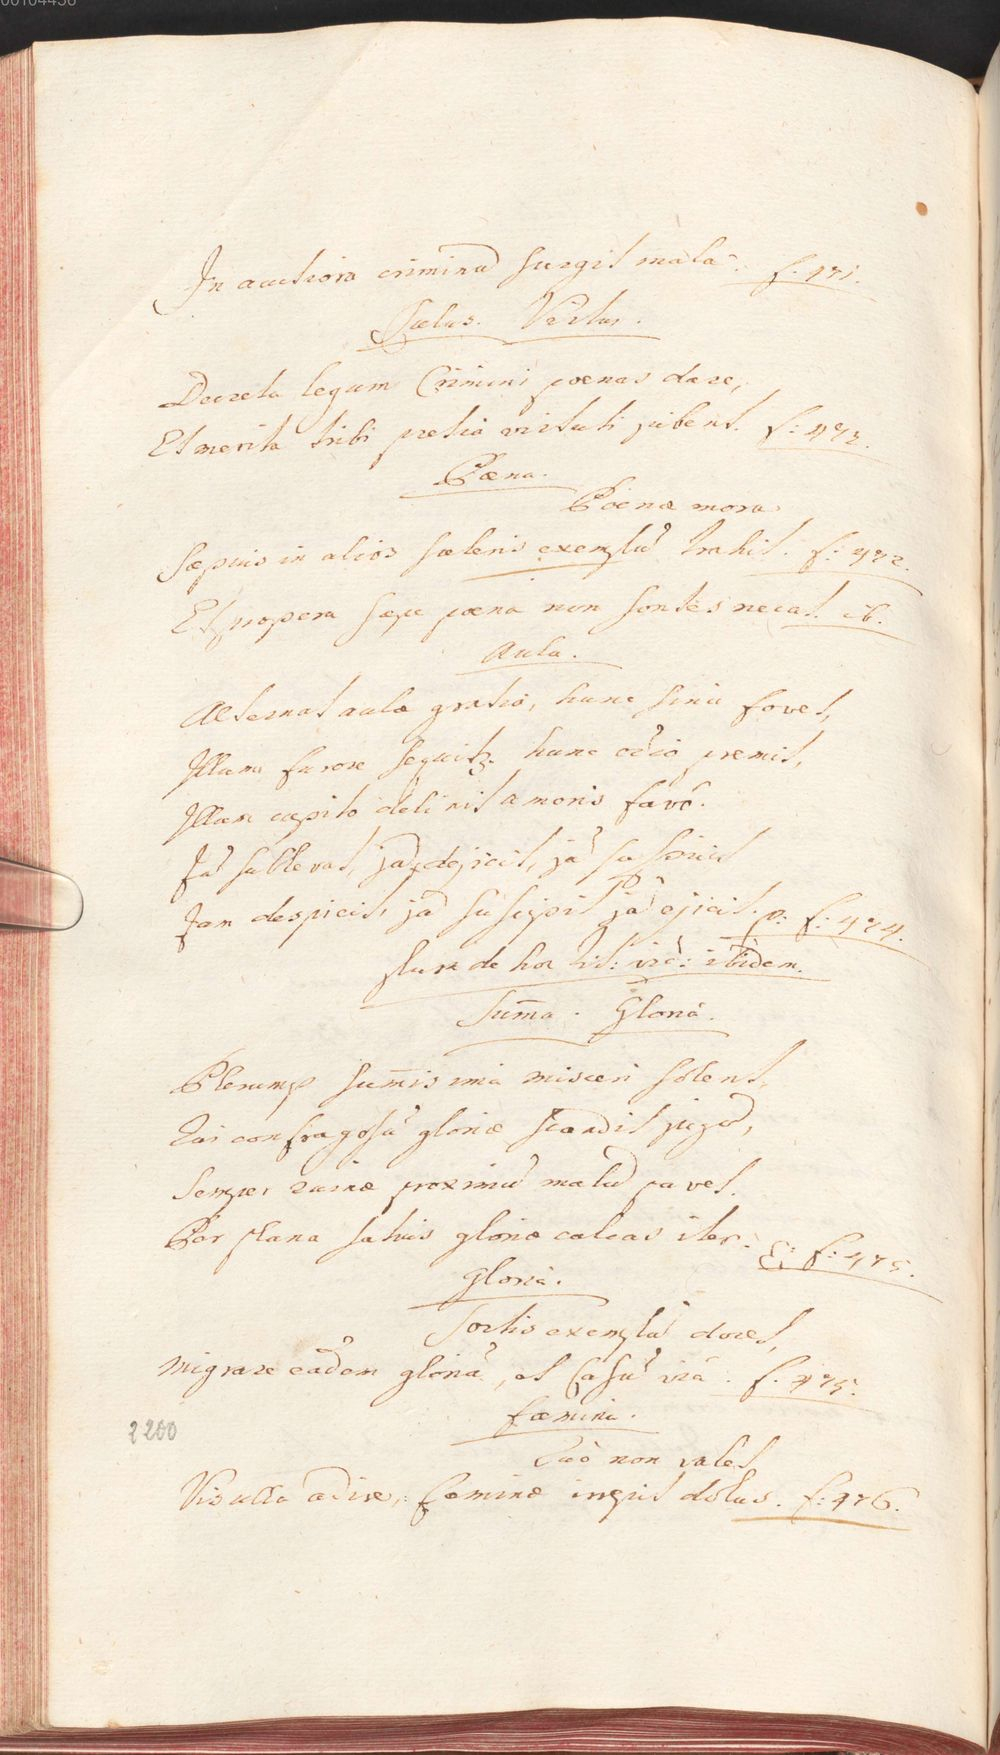 00104436
In auctiora criminū surgit mala. f: 471.
Scelus. Virtus.
Decreta legum Crimini poenas dare,
Et merita tribi pretia virtuti jubent. f: 472.
Pœna.
Pœnæ mora
Sæpius in alios sceleris exemplū trahit. f: 472.
Et propera sæpe pœna non sontes necat. ib.
Aula.
Alternat aulæ gratia, hunc sinu fovet,
Illum furore sequitr hunc odio premit,
Illum cupito delinit amoris favō.
Jā sublevat, jā dejicit, jā
Jam despicit, jā suscipit jā ejicit. p: f: 474.
plura de hoc tit: vid: ibidem.
Sum̄a. Gloria.
Plerumq sum̄is ima misceri solent,
Qui confragosū gloriæ scandit jugū,
Semper ruinæ proximū malū pavet.
Per plana satius gloriæ calcas iter. E: f: 475.
Gloria.
Sortis exemplū docet,
Migrare eādem gloriā, et Casū viā. f. 475.
fœmina.
Quò non valet
Vis ulla adire, feminæ irrepit dolus. f: 476.
2200